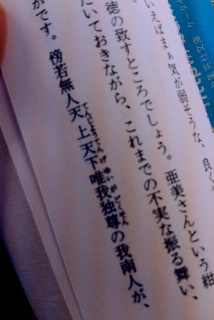 いえばまぁ気が弱そうな、良く
徳の致すところでしょう。亜美さんという紺
たいておきながら、これまでの不実な振る舞い、
がです。傍若無人天上天下唯我独尊の我南人が、